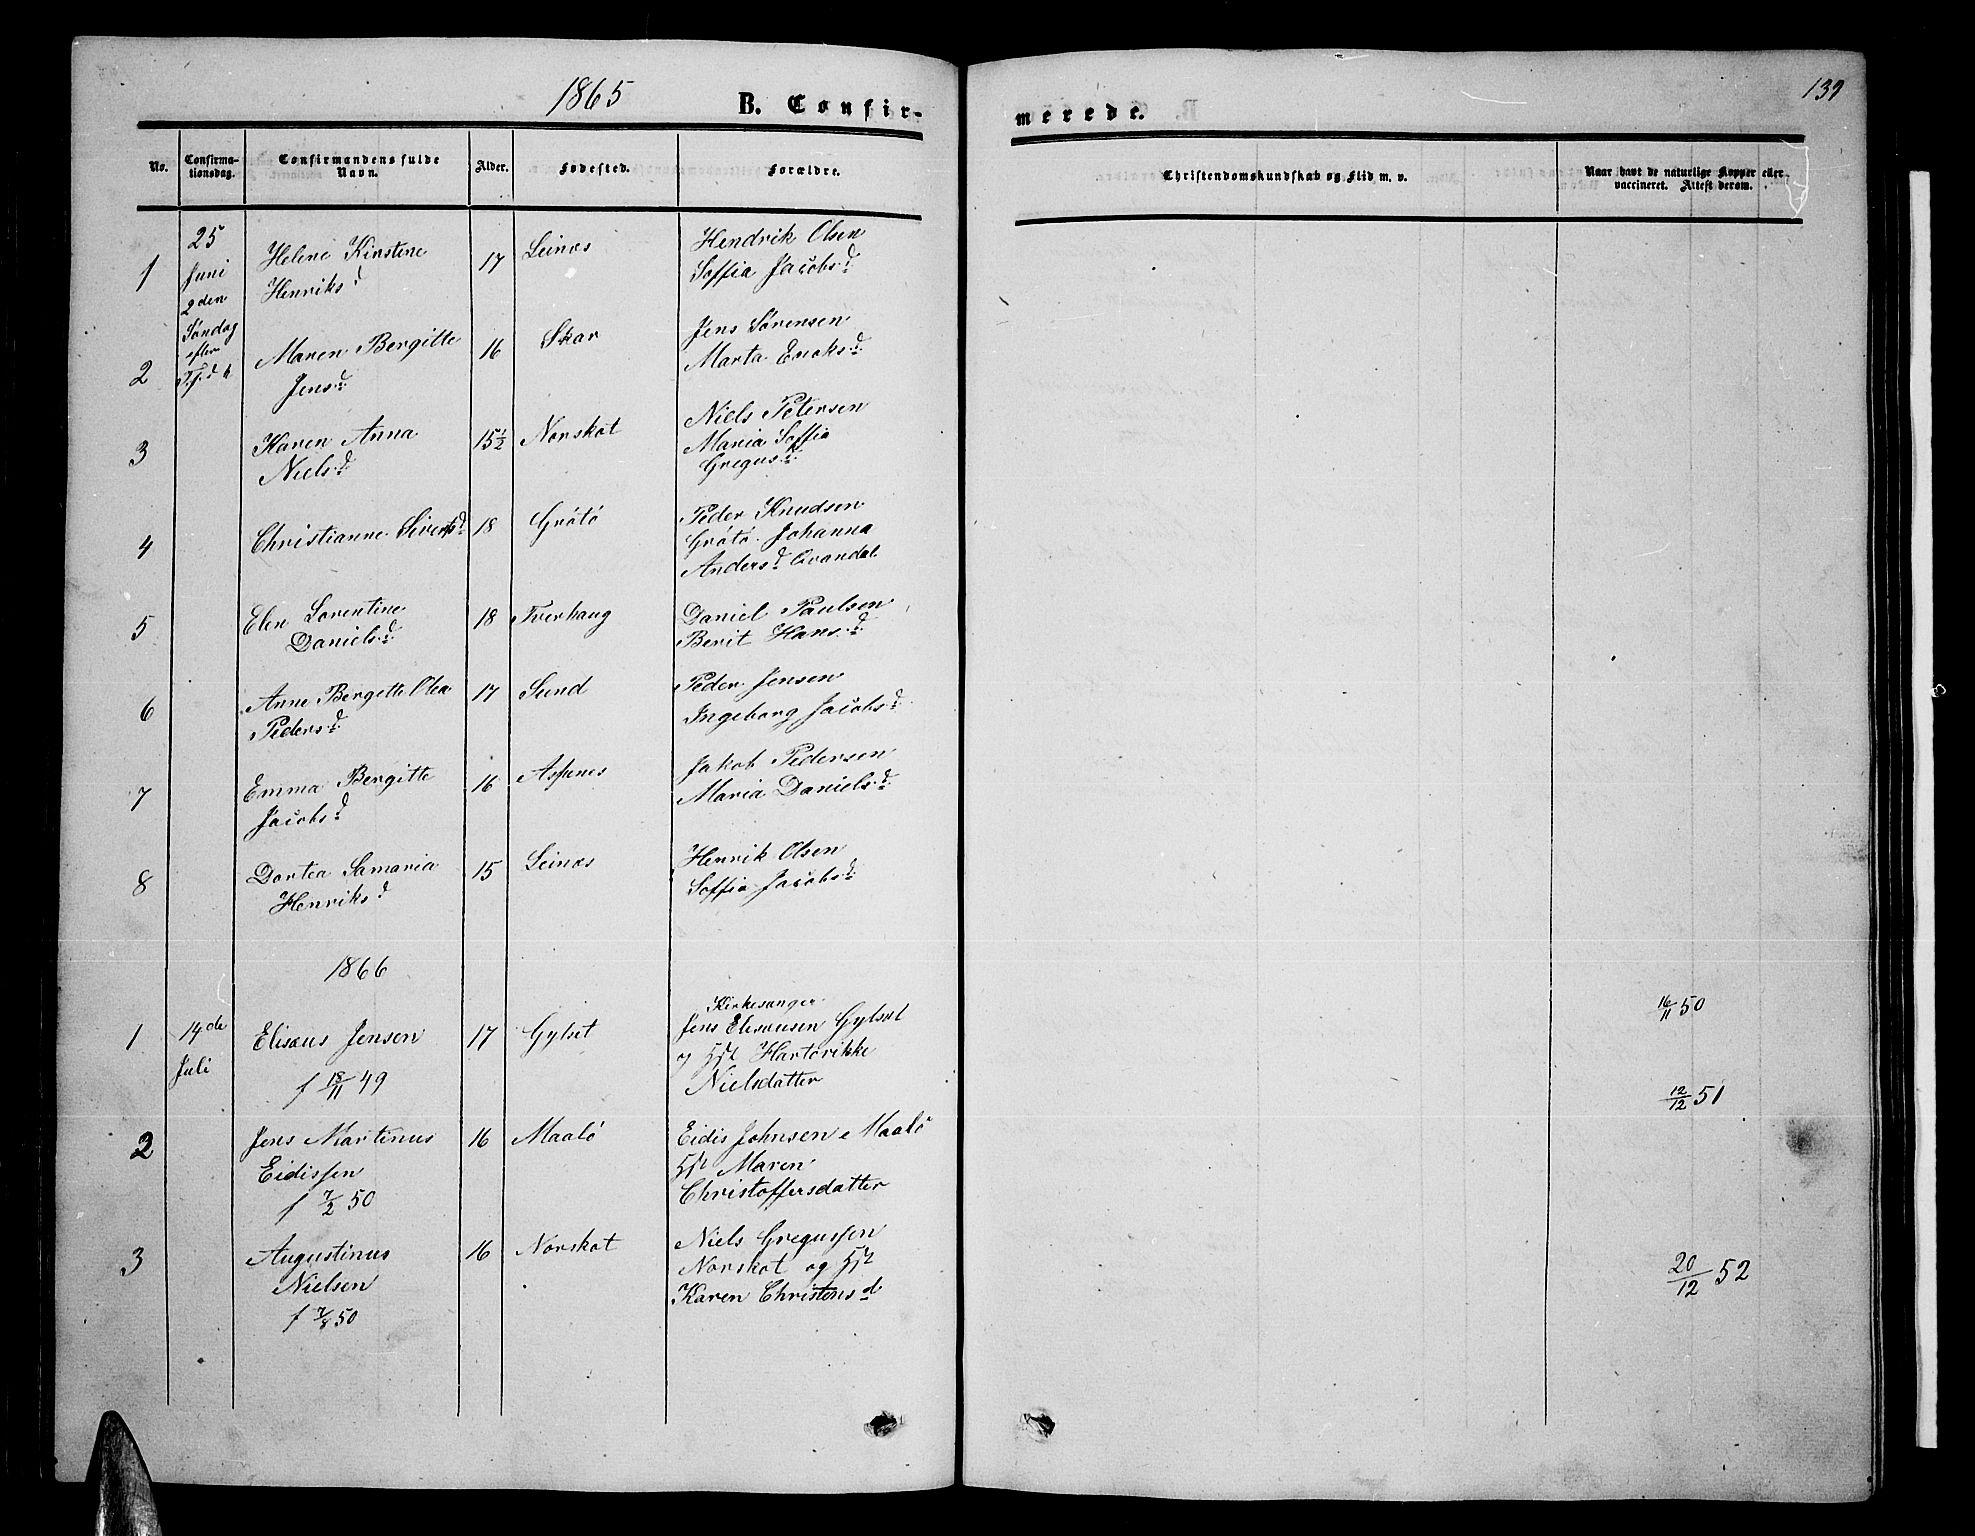 1865
B. Confir-
merede.
139
No.
Confirma-
tionsdag.
Confirmandens fulde
Navn.
Alder.
Fødested.
Forældre.
Christendomskundskab og Flid m. v.
Naar havt de naturlige Kopper eller
vaccineret. Attest derom.
1
25
Juni
2den
Søndag
efter
Helene Kirstene
Henriksd
17
Leines
Hendrik Olsen
Soffia Jacobsd
2
Maren Bergitte
Jensd
16
Skar
Jens Sørensen
Marta Enoksd
3
Karen Anna
Nielsd
15½
Norskot
Niels Petersen
Maria Soffia
Gregusd
4
Christianne Sivertsd
18
Grøtø
Peder Knudsen
Grøtø. Johanna
Andersd Qvandal
5
Elen Lorentine
Danielsd
18
Tverhaug
Daniel Paulsen
Berit Hansd
6
Anne Bergitte Olea
Pedersd
17
Sund
Peder Jensen
Ingeborg Jacobsd
7
Emma Bergitte
Jacobsd
16
Aspenes
Jakob Pedersen
Maria Danielsd
8
Dortea Samaria
Henriksd
15
Leines
Henrik Olsen
Soffia Jacobsd
1866
1
14de
Juli
Elisæus Jensen
f 18/11 49
17
Gylset
Kirkesanger
Jens Elisæusen Gylset
og Hst Hartvikke
Nielsdatter
16/11 50
2
Jens Martinus
Eidissen
f 7/2 50
16
Maalø
Eidis Johnsen Maalø
Hst Maren
Christoffersdatter
12/12 51
3
Augustinus
Nielsen
f 7/8 50
16
Norskot
Niels Gregussen
Norskot og Hst
Karen Christensd
20/12 52